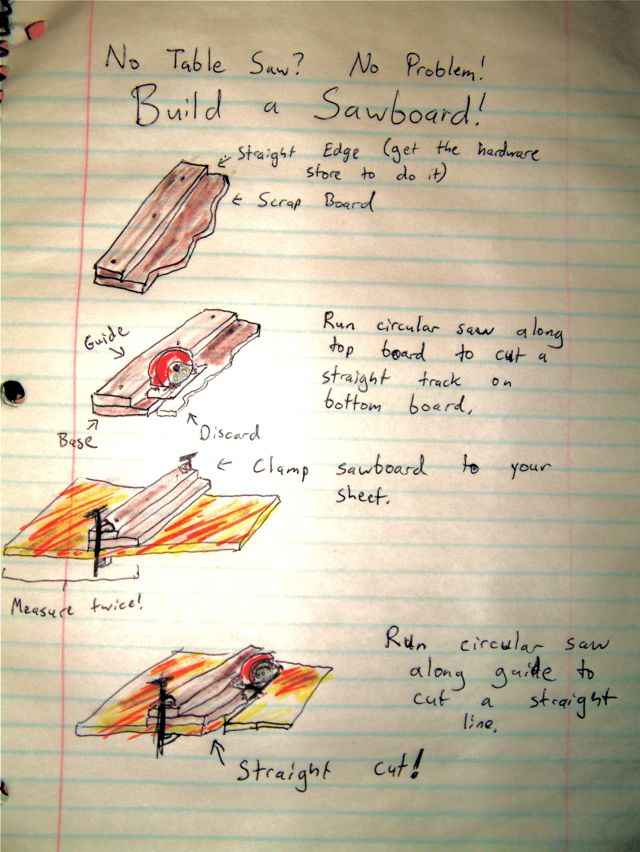 No Table Saw? No Problem!
Build a Sawboard!
Straight Edge (get the hardware
store to do it)
Scrap Board
Guide
Run circular saw along
top board to cut a
straight track on
bottom board.
Base
Discard
Clamp sawboard to your
sheet.
Measure twice!
Run circular saw
along guide to
cut a straight
line.
Straight cut!